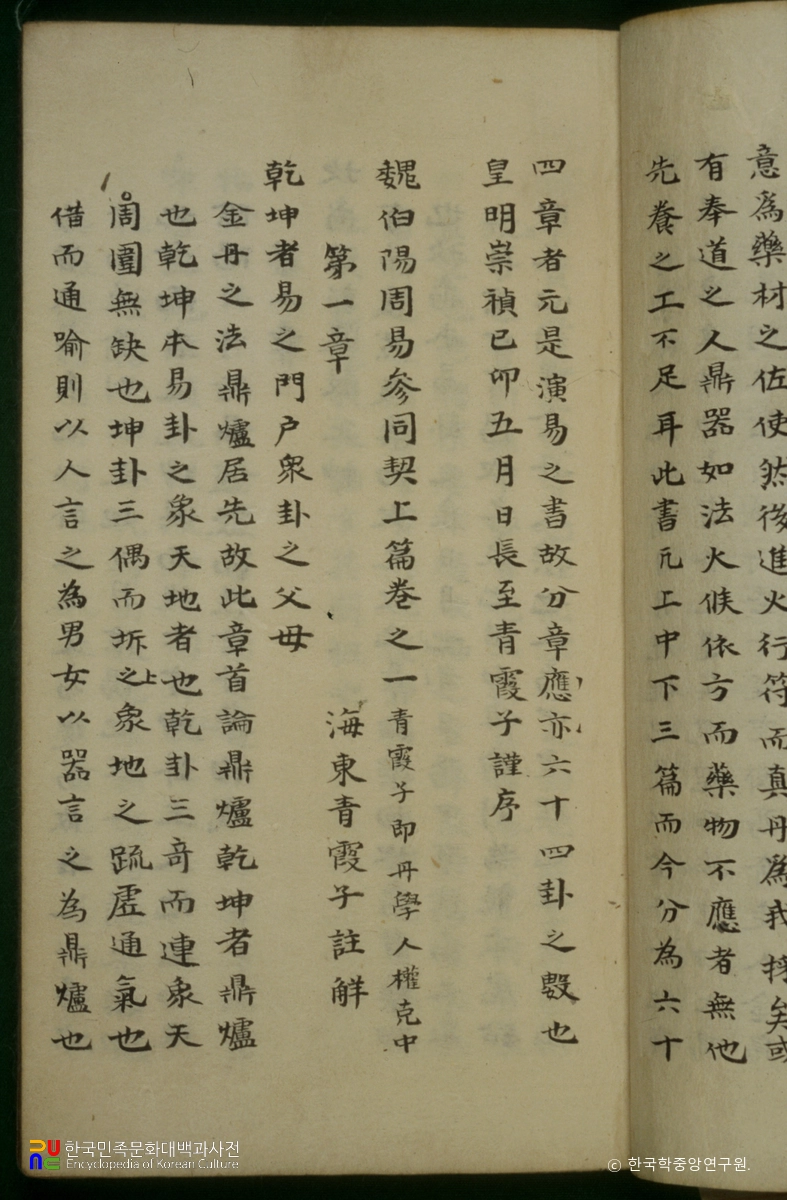 意爲藥材之佐使然後進火行符而真丹爲我採矣或
有奉道之人鼎器如法火候依方而藥物不應者無他
先養之工不足耳此書元上中下三篇而今分為六十
四章者元是演易之書故分章應亦六十四卦之數也
皇明崇禎己卯五月日長至青霞子謹序
魏伯陽周易參同契上篇卷之一 青霞子即丹學人權克中
第一章 海東青霞子註解
乾坤者易之門戶衆卦之父母
金丹之法鼎爐居先故此章首論鼎爐乾坤者鼎爐
也乾坤本易卦之象天地者也乾卦三奇而連象天
周圍無缺也坤卦三偶而坼之上象地之疏虛通氣也
借而通喻則以人言之為男女以器言之為鼎爐也
한국민족문화대백과사전
Encyclopedia of Korean Culture
ⓒ 한국학중앙연구원.